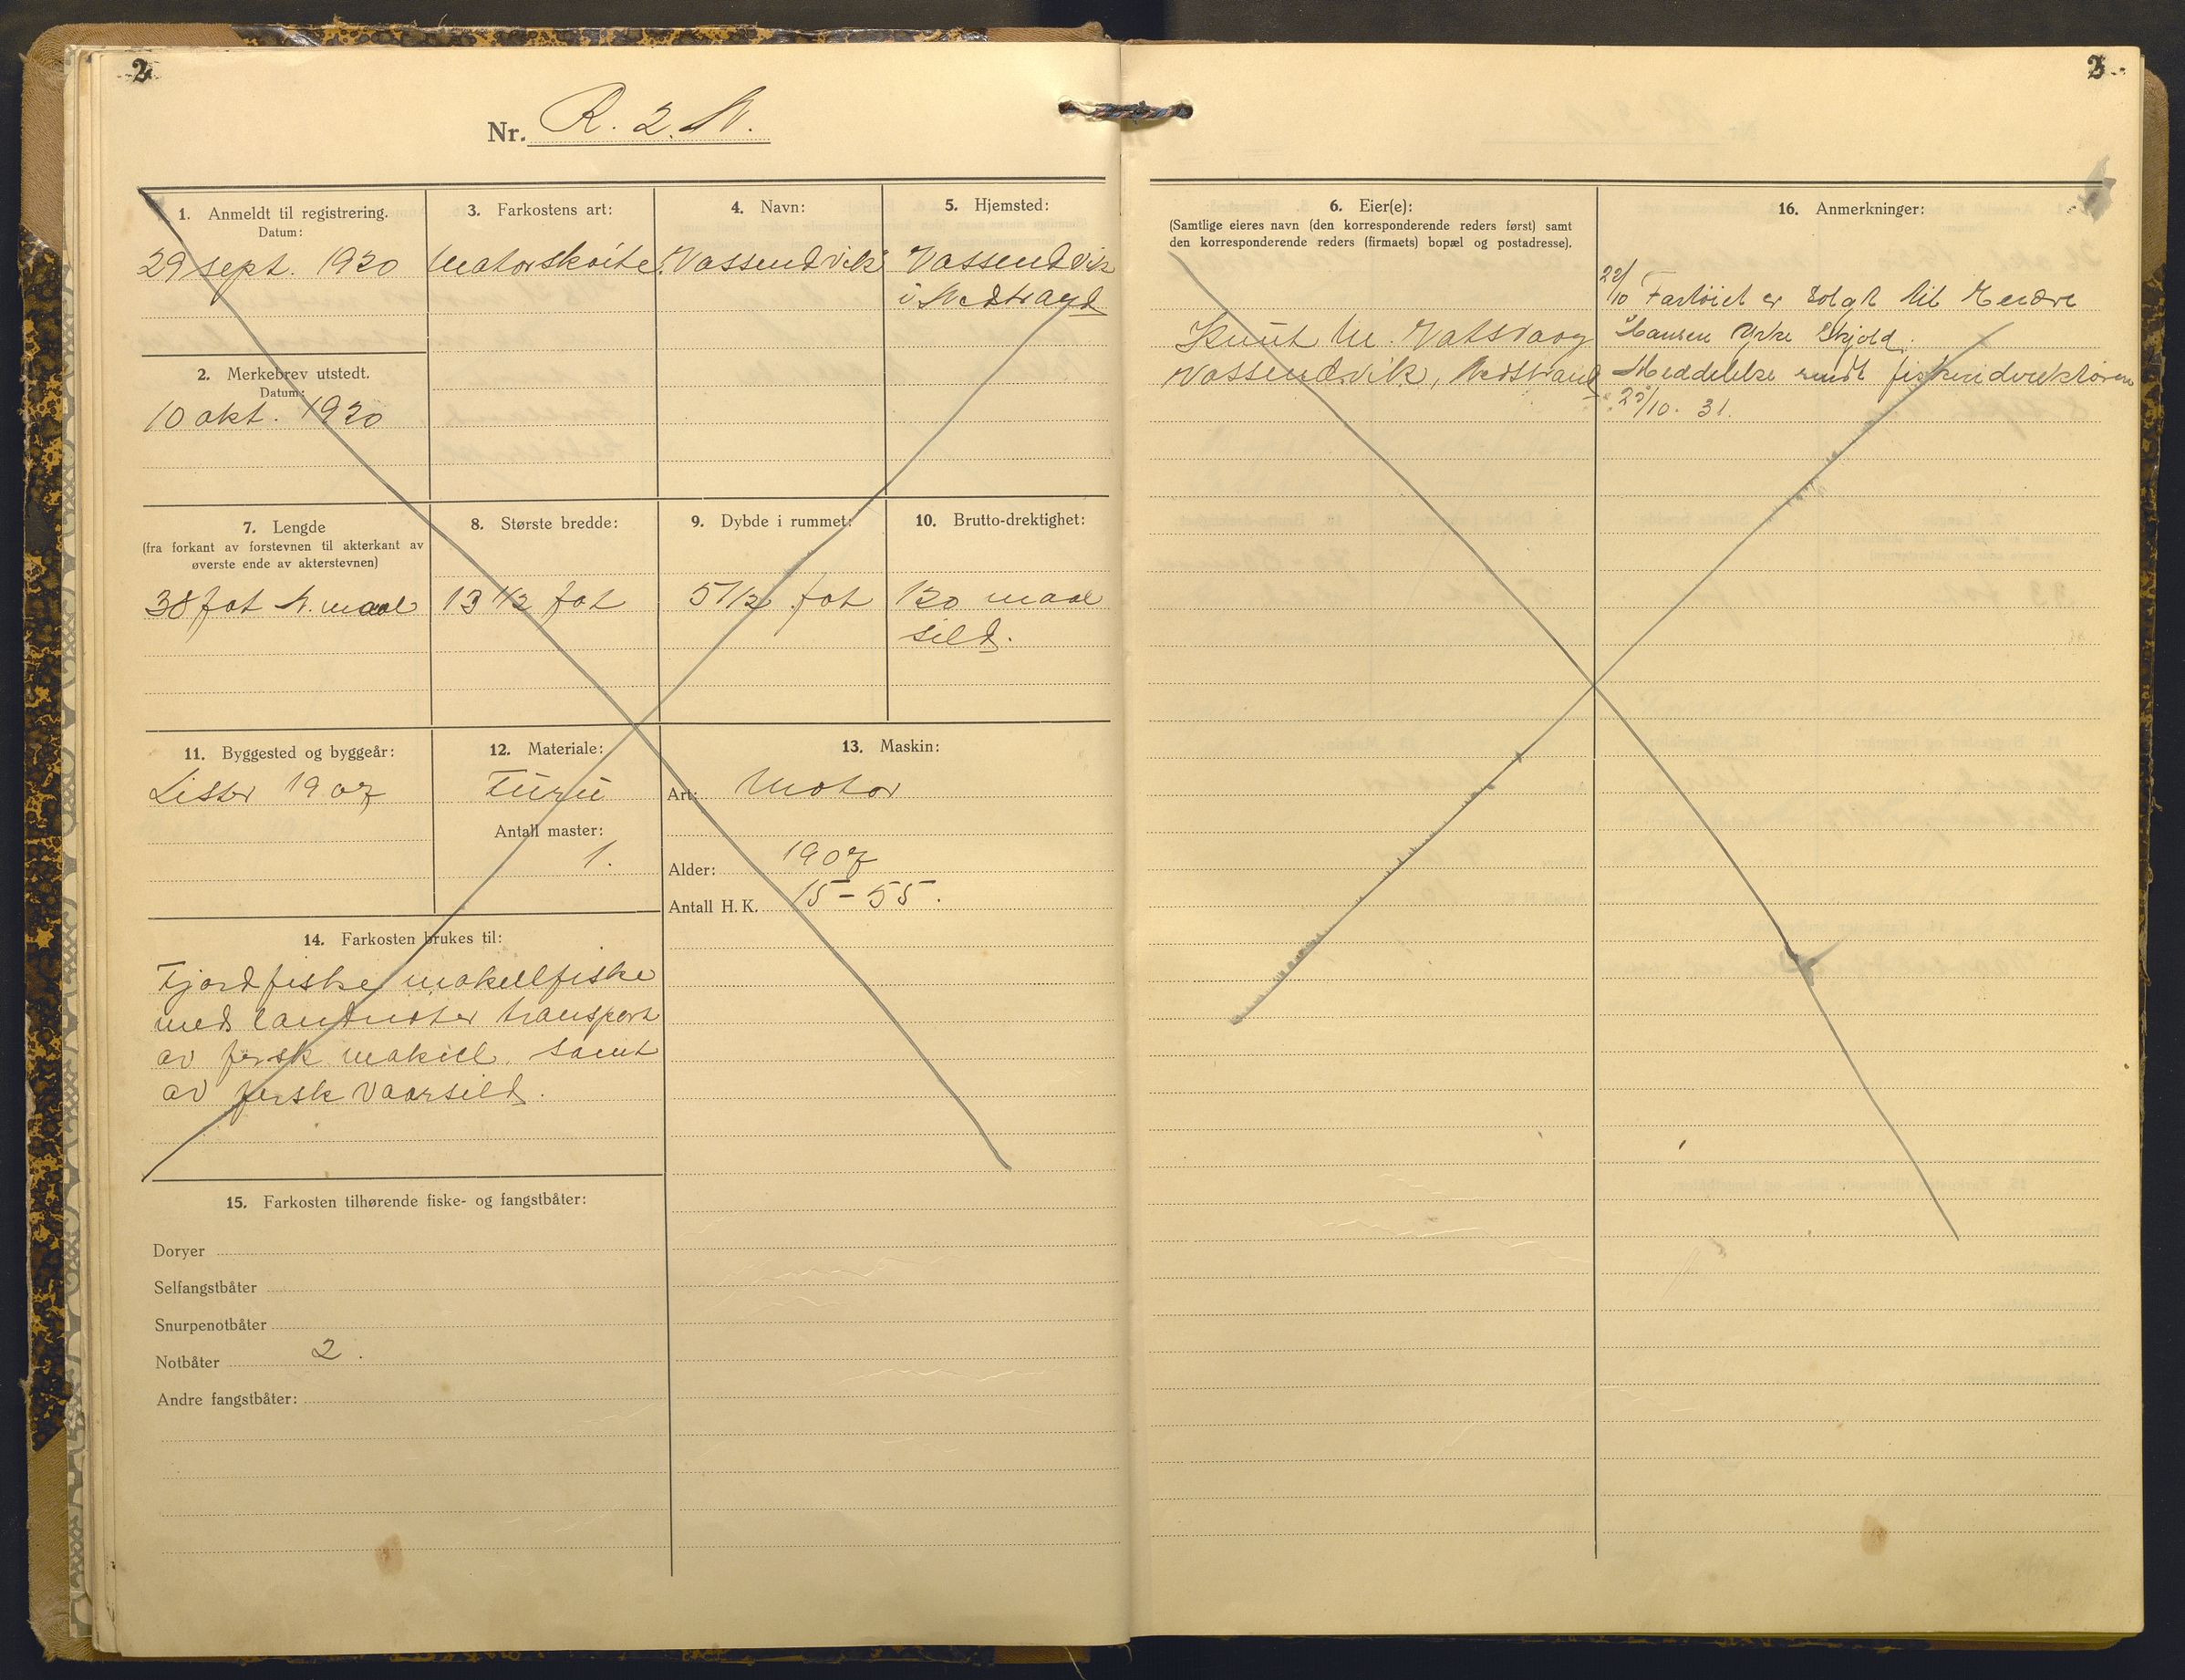 2
Nr. R. 2. N.
1. Anmeldt til registrering.
Datum:
29 sept. 1920
2. Merkebrev utstedt.
Datum:
10 okt. 1920
3. Farkostens art:
Motorskøite
4. Navn:
Vassendvik
5. Hjemsted:
Vassendvik
i Nedstrand
7. Lengde
(fra forkant av forstevnen til akterkant av
øverste ende av akterstevnen)
38 fot N. maal
8. Største bredde:
13 1/2 fot
9. Dybde i rummet:
5 1/2 fot
10. Brutto-drektighet:
120 maal
sild.
11. Byggested og byggeår:
Lister 1907
12. Materiale:
Furu
Antall master:
1.
13. Maskin:
Art: Motor
Alder: 1907
Antall H.K. 15-55.
14. Farkosten brukes til:
Fjordfiske makrellfiske
med landnoter transport
av fersk makrell samt
av fersk vaarsild.
15. Farkosten tilhørende fiske- og fangstbåter:
Doryer
Selfangstbåter
Snurpenotbåter
Notbåter 2.
Andre fangstbåter:
3
6. Eier(e):
(Samtlige eieres navn (den korresponderende reders først) samt
den korresponderende reders (firmaets) bopæl og postadresse).
Knut M. Vatsvaag
Vassendvik, Nedstrand
16. Anmerkninger:
Fartøiet er solgt til
Hansen Yrke Skjold.
Meddelelse sendt fiskeridirektøren
/10. 31.